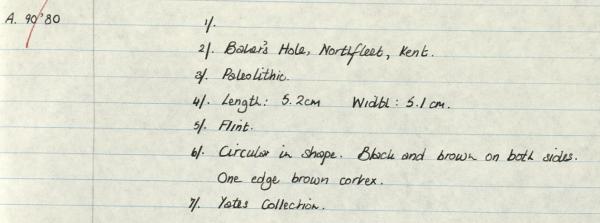 A. 90'80
1/.
2/. Baker's Hole, Northfleet, Kent.
3/. Paleolithic.
4/. Length: 5.2cm Width: 5.1cm.
5/. Flint.
6/. Circular in shape. Black and brown on both sides.
One edge brown cortex.
7/. Yates Collection.